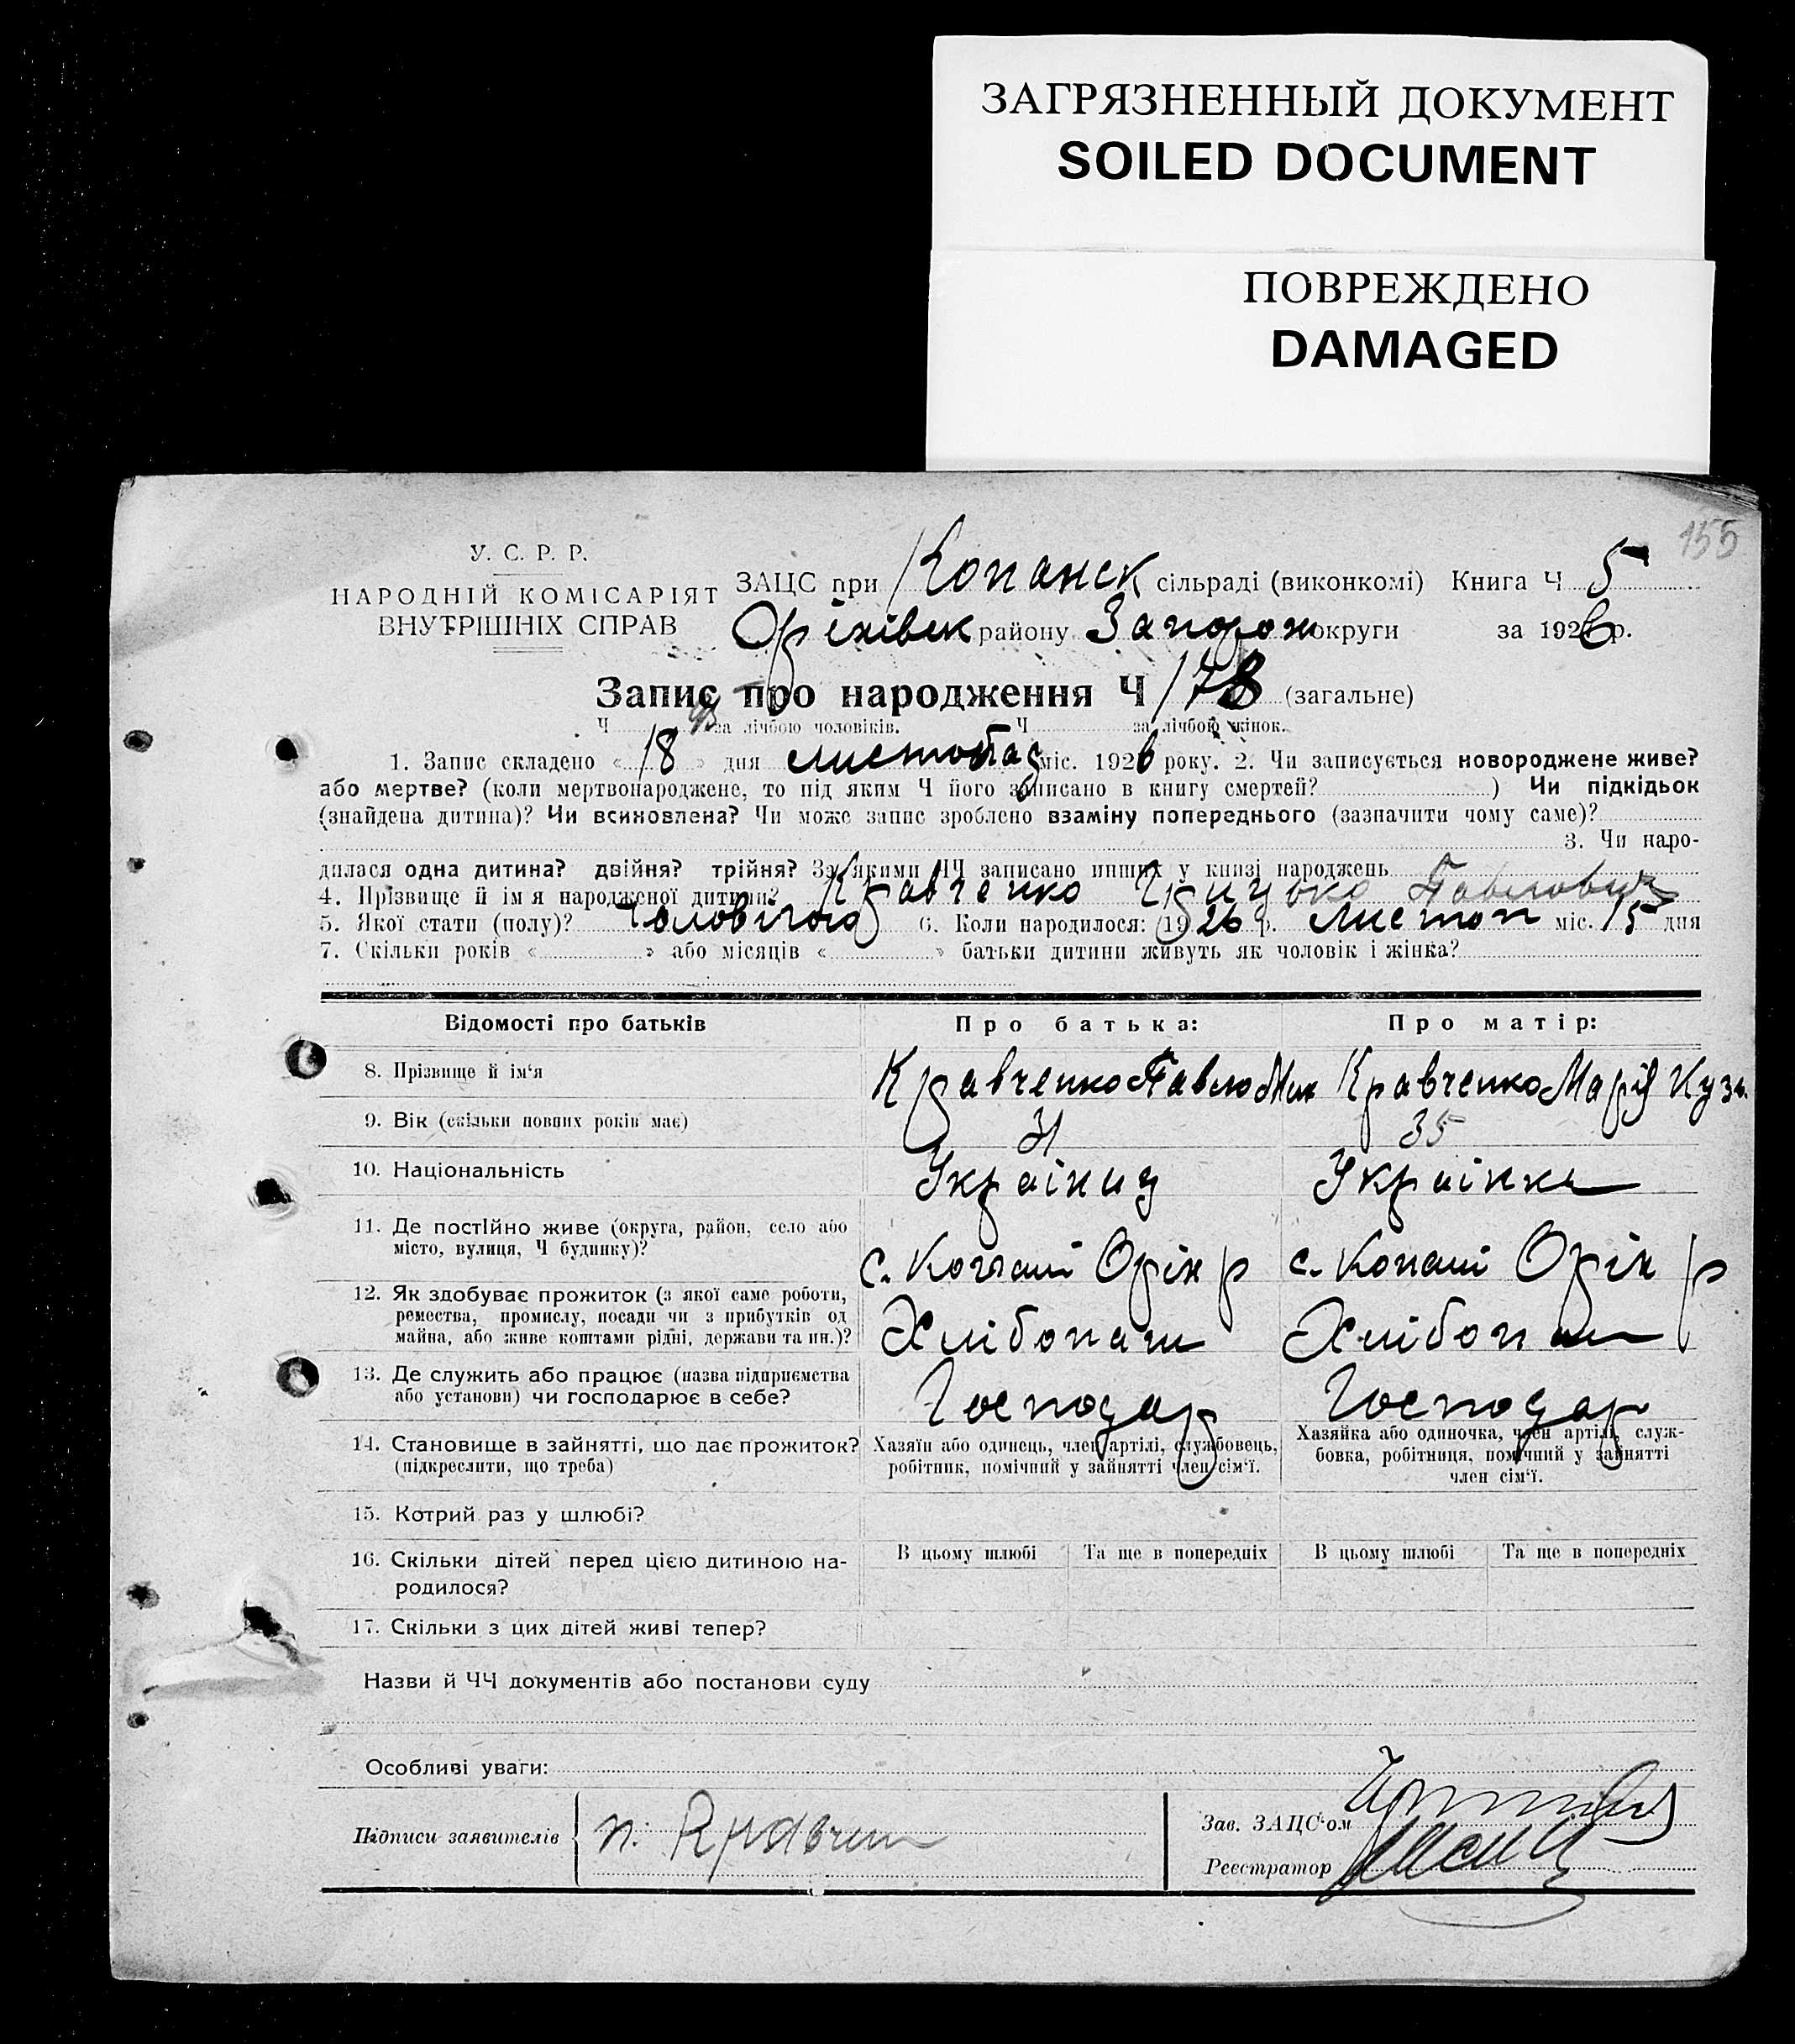 ЗАГРЯЗНЕННЫЙ ДОКУМЕНТ
SOILED DOCUMENT
ПОВРЕЖДЕНО
DAMAGED
155
У. С. Р. Р.
НАРОДНІЙ КОМІСАРІЯТ
ВНУТРІШНІХ СПРАВ
ЗАЦС при Копанск сільраді (виконкомі) Книга Ч 5
Орінівск району Запорож округи за 1926 р.
Запис про народження Ч 178 (загальне)
Ч за лічбою чоловіків. Ч за лічбою жінок.
1. Запис складено « 18 » дня листопад міс. 1926 року. 2. Чи записується новороджене живе?
або мертве? (коли мертвонароджене, то під яким Ч його записано в книгу смертей? ) Чи підкідьок
(знайдена дитина)? Чи всиновлена? Чи може запис зроблено взаміну попереднього (зазначити чому саме)?
3. Чи наро-
дилася одна дитина? двійня? трійня? За якими ЧЧ записано инших у книзі народжень
4. Прізвище й ім я народженої дитини? Кравченко Грицько Павлович
5. Якої стати (полу)? Чоловічої 6. Коли народилося: (1926 р. Листоп міс. 15 дня
7. Скільки років « » або місяців « » батьки дитини живуть як чоловік і жінка?
Відомості про батьків Про батька: Про матір:
8. Прізвище й ім‘я Кравченко Павло Мик Кравченко Марія Кузь.
9. Вік (скільки повних років має) 31 35
10. Національність Україниц Українка
11. Де постійно живе (округа, район, село або
місто, вулиця, Ч будинку)?
с. Копані Орін р с. Копані Орін р
12. Як здобуває прожиток (з якої саме роботи,
ремества, промислу, посади чи з прибутків од
майна, або живе коштами рідні, держави та ин.)?
Хлібопаш Хлібопаш
13. Де служить або працює (назва підприємства
або установи) чи господарює в себе?
Господар Господар
14. Становище в зайнятті, що дає прожиток?
(підкреслити, що треба)
Хазяїн або одинець, член артілі, службовець,
робітник, помічний у зайнятті член сім‘ї.
Хазяйка або одиночка, член артілі, служ-
бовка, робітниця, помічний у зайнятті
член сім‘ї.
15. Котрий раз у шлюбі?
16. Скільки дітей перед цією дитиною на-
родилося?
В цьому шлюбі Та ще в попередніх В цьому шлюбі Та ще в попередніх
17. Скільки з цих дітей живі тепер?
Назви й ЧЧ документів або постанови суду
Особливі уваги:
Підписи заявителів п. Кравчен
Зав. ЗАЦС‘ом
Реєстратор